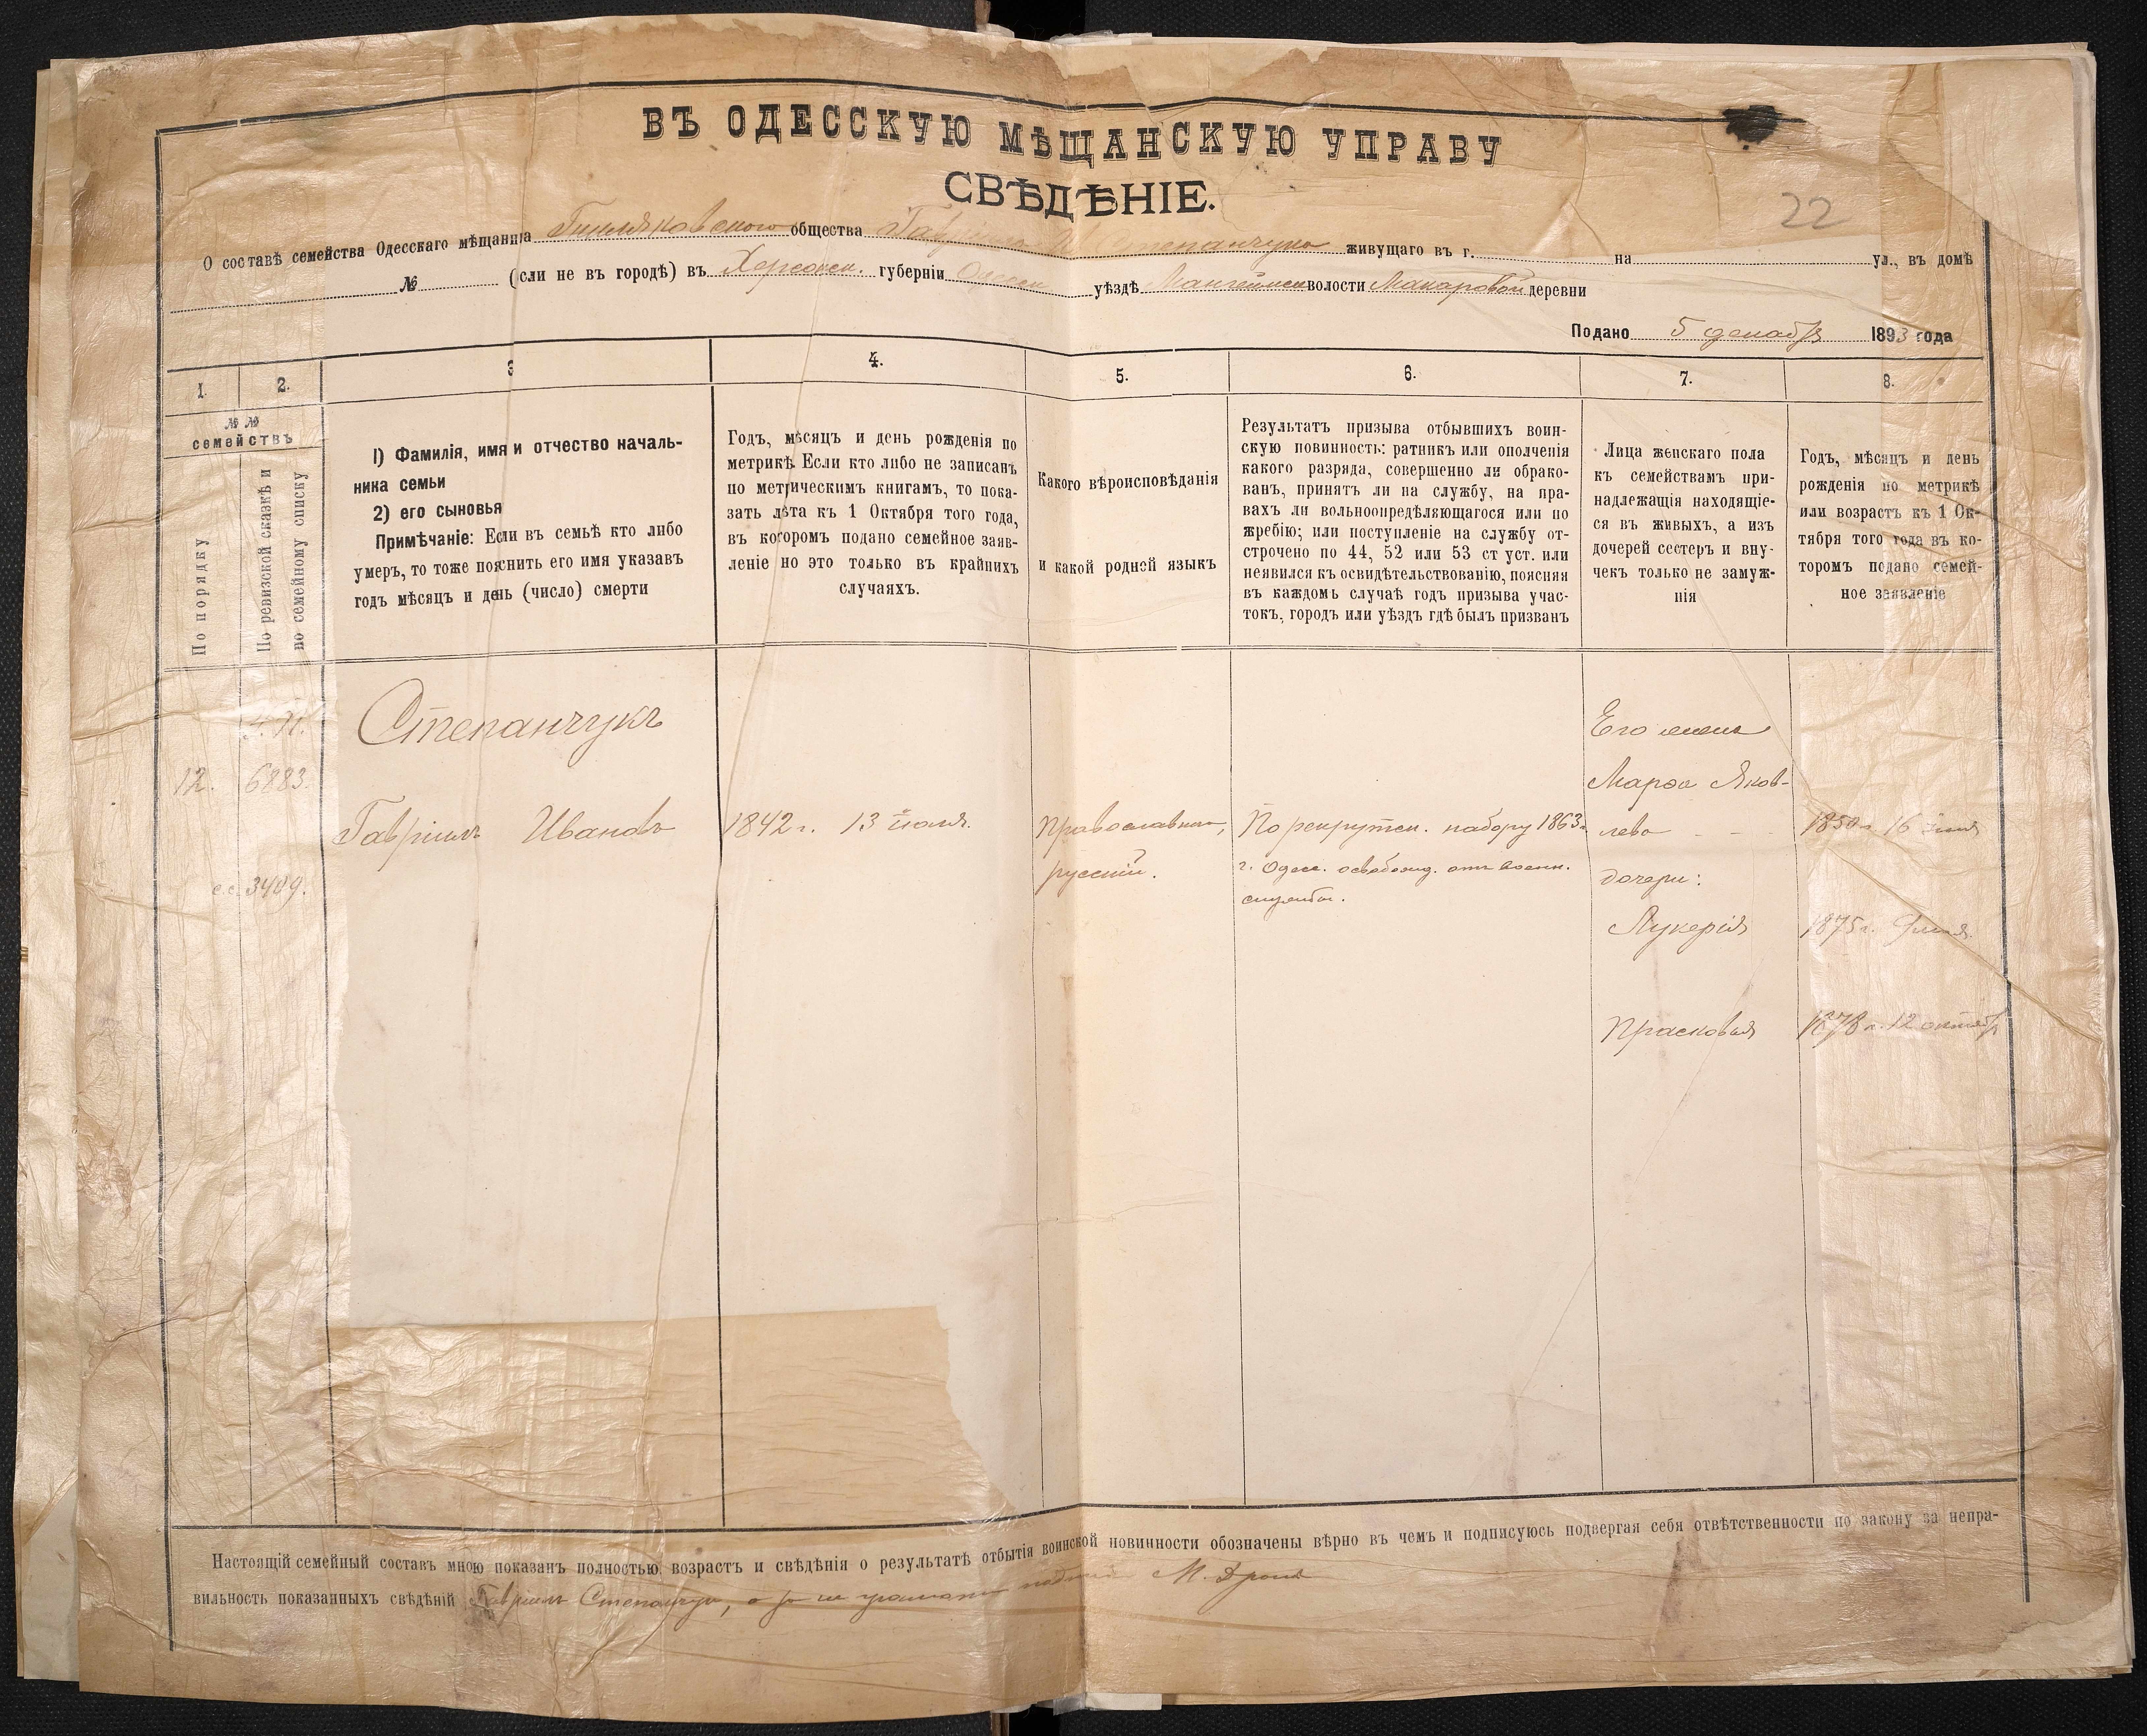 ВЪ ОДЕССКУЮ МѢЩАНСКУЮ УПРАВУ
СВѢДѢНІЕ.
22
О составѣ семейства Одесскаго мѣщанина общества Гавріила Ив. Степанчука живущаго въ г. на ул., въ домѣ
№ (сли не въ городѣ) въ Херсонск. губерніи Одесск уѣздѣ Мангеймск волости Макаровой деревни
Подано 5 декабр 1893 года
1. 2. 3 4. 5. 6. 7. 8.
№ №
семействъ
По порядку
По ревизской сказкѣ и
по семейному списку
1) Фамилія, имя и отчество началь-
ника семьи
2) его сыновья
Примѣчаніе: Если въ семьѣ кто либо
умеръ, то тоже пояснить его имя указавъ
годъ мѣсяцъ и день (число) смерти
Годъ, мѣсяцъ и день рожденія по
метрикѣ. Если кто либо не записанъ
по метрическимъ книгамъ, то пока-
зать лѣта къ 1 Октября того года,
въ которомъ подано семейное заяв-
леніе но это только въ крайнихъ
случаяхъ.
Какого вѣроисповѣданія
и какой родной языкъ
Результатъ призыва отбывшихъ воин-
скую повинность: ратникъ или ополченія
какого разряда, совершенно ли обрако-
ванъ, принятъ ли на службу, на пра-
вахъ ли вольноопредѣляющагося или по
жребію; или поступленіе на службу от-
строчено по 44, 52 или 53 ст уст. или
неявился къ освидѣтельствованію, поясняя
въ каждомъ случаѣ годъ призыва учас-
токъ, городъ или уѣздъ гдѣ былъ призванъ
Лица женскаго пола
къ семействамъ при-
надлежащія находящіе-
ся въ живыхъ, а изъ
дочерей сестеръ и вну-
чекъ только не замуж-
нія
Годъ, мѣсяцъ и день
рожденія по метрикѣ
или возрастъ къ 1 Ок-
тября того года въ ко-
торомъ подано семей-
ное заявленіе
Степанчукъ
Его жена
12. 6883. Марѳа Яков-
Гавріилъ Ивановъ 1842 г. 13 іюля. Православный, По рекрутск. набору 1863 лева - - 1850 г. 16
русскій. г. Одесс. освобожд. отъ воен. дочери:
с.с. 3409. службы.
Лукерія 1875 г.
Прасковья 1878 г. 12 октябр
Настоящій семейный составъ мною показанъ полностью, возрастъ и свѣдѣнія о результатѣ отбытія воинской повинности обозначены вѣрно въ чемъ и подписуюсь подвергая себя отвѣтственности по закону за непра-
вильность показанныхъ свѣдѣній Гавріилъ Степанчукъ, а за не грамотн